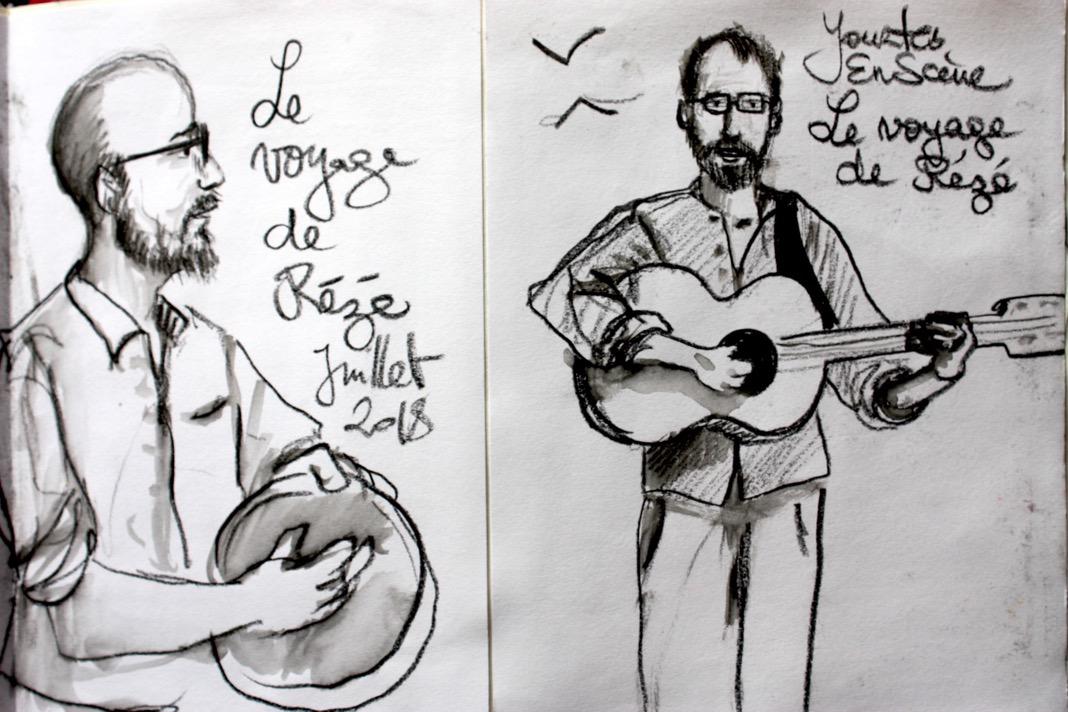 Le
voyage
de
Rézé
Juillet
2018
Yourtes
En Scène
Le voyage
de Rézé